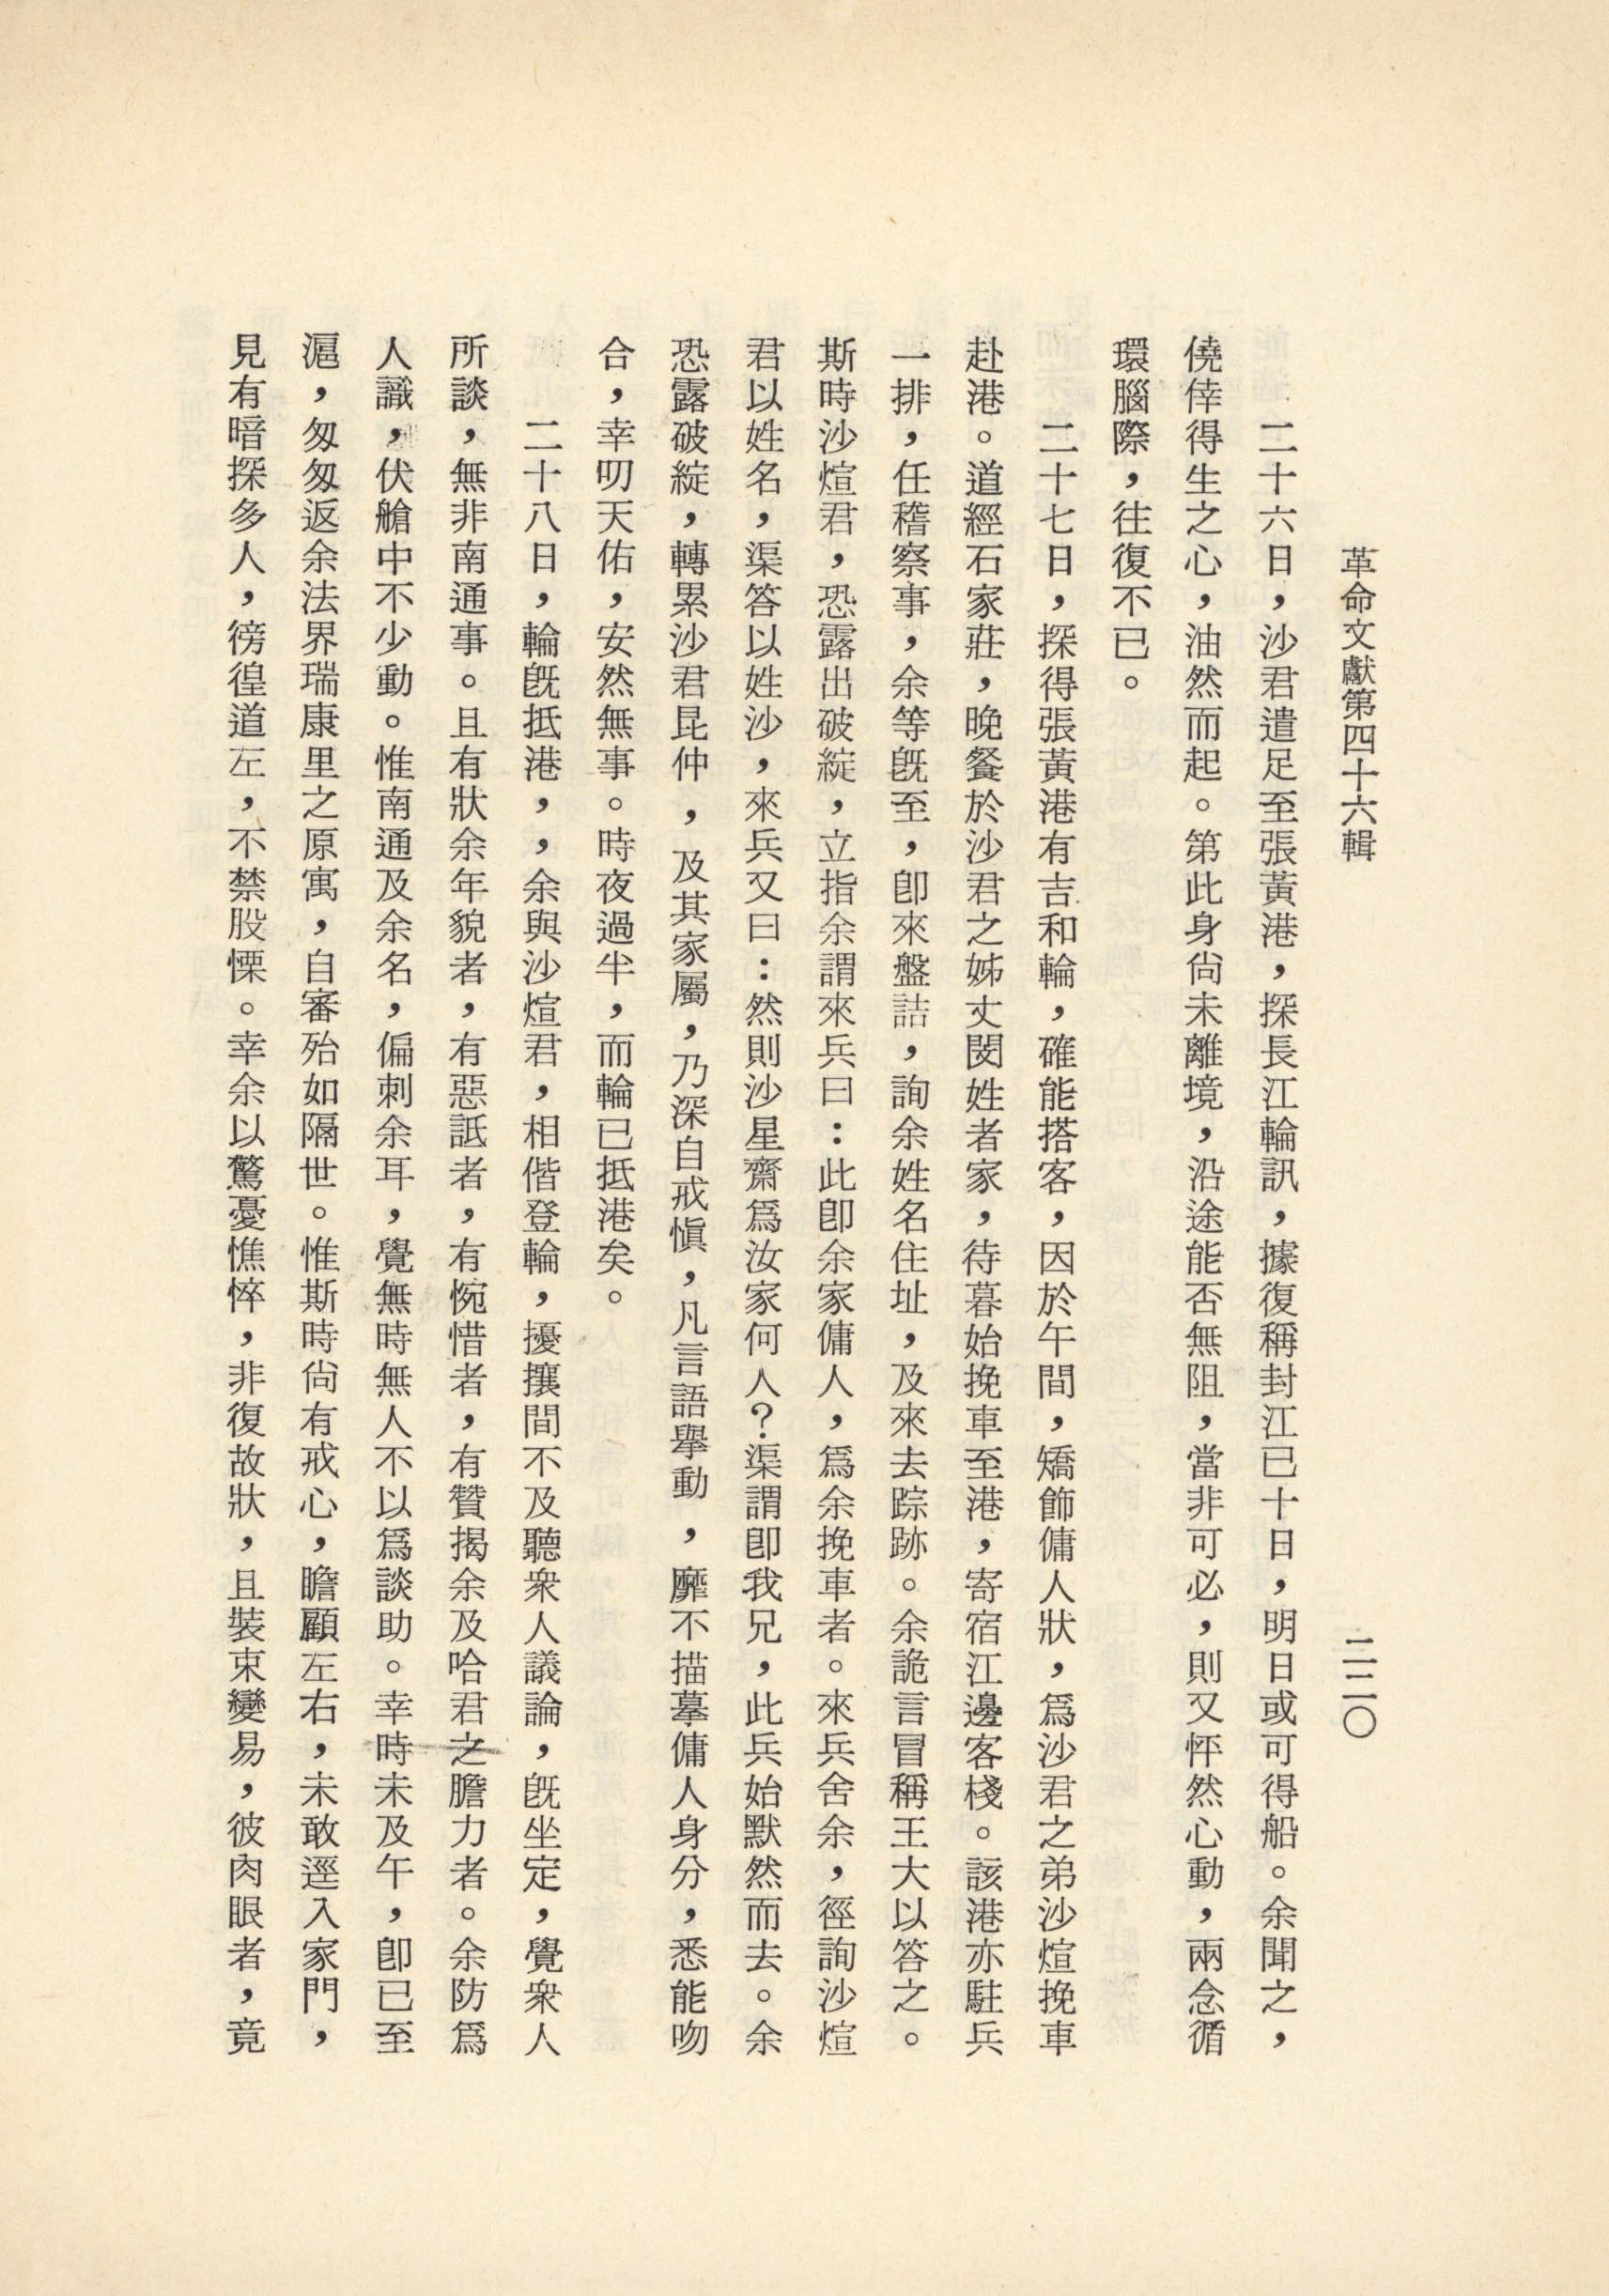 革命文獻第四十六輯
二二〇
二十六日，沙君遣足至張黃港，探長江輪訊，據復稱封江已十日，明日或可得船。余聞之，
僥倖得生之心，油然而起。第此身尙未離境，沿途能否無阻，當非可必，則又怦然心動，兩念循
環腦際，往復不已。
二十七日，探得張黃港有吉和輪，確能搭客，因於午間，矯飾傭人狀，爲沙君之弟沙煊挽車
赴港。道經石家莊，晚餐於沙君之姊丈閔姓者家，待暮始挽車至港，寄宿江邊客棧。該港亦駐兵
一排，任稽察事，余等旣至，卽來盤詰，詢余姓名住址，及來去踪跡。余詭言冒稱王大以答之。
斯時沙煊君，恐露出破綻，立指余謂來兵曰：此卽余家傭人，爲余挽車者。來兵舍余，徑詢沙煊
君以姓名，渠答以姓沙，來兵又曰：然則沙星齋爲汝家何人？渠謂卽我兄，此兵始默然而去。余
恐露破綻，轉累沙君昆仲，及其家屬，乃深自戒愼，凡言語舉動，靡不描摹傭人身分，悉能吻
合，幸叨天佑，安然無事。時夜過半，而輪已抵港矣。
二十八日，輪旣抵港，，余與沙煊君，相偕登輪，擾攘間不及聽衆人議論，旣坐定，覺衆人
所談，無非南通事。且有狀余年貌者，有惡詆者，有惋惜者，有贊揭余及哈君之膽力者。余防爲
人識，伏艙中不少動。惟南通及余名，偏刺余耳，覺無時無人不以爲談助。幸時未及午，卽已至
滬，匆匆返余法界瑞康里之原寓，自審殆如隔世。惟斯時尙有戒心，瞻顧左右，未敢逕入家門，
見有暗探多人，徬徨道左，不禁股慄。幸余以驚憂憔悴，非復故狀，且裝束變易，彼肉眼者，竟